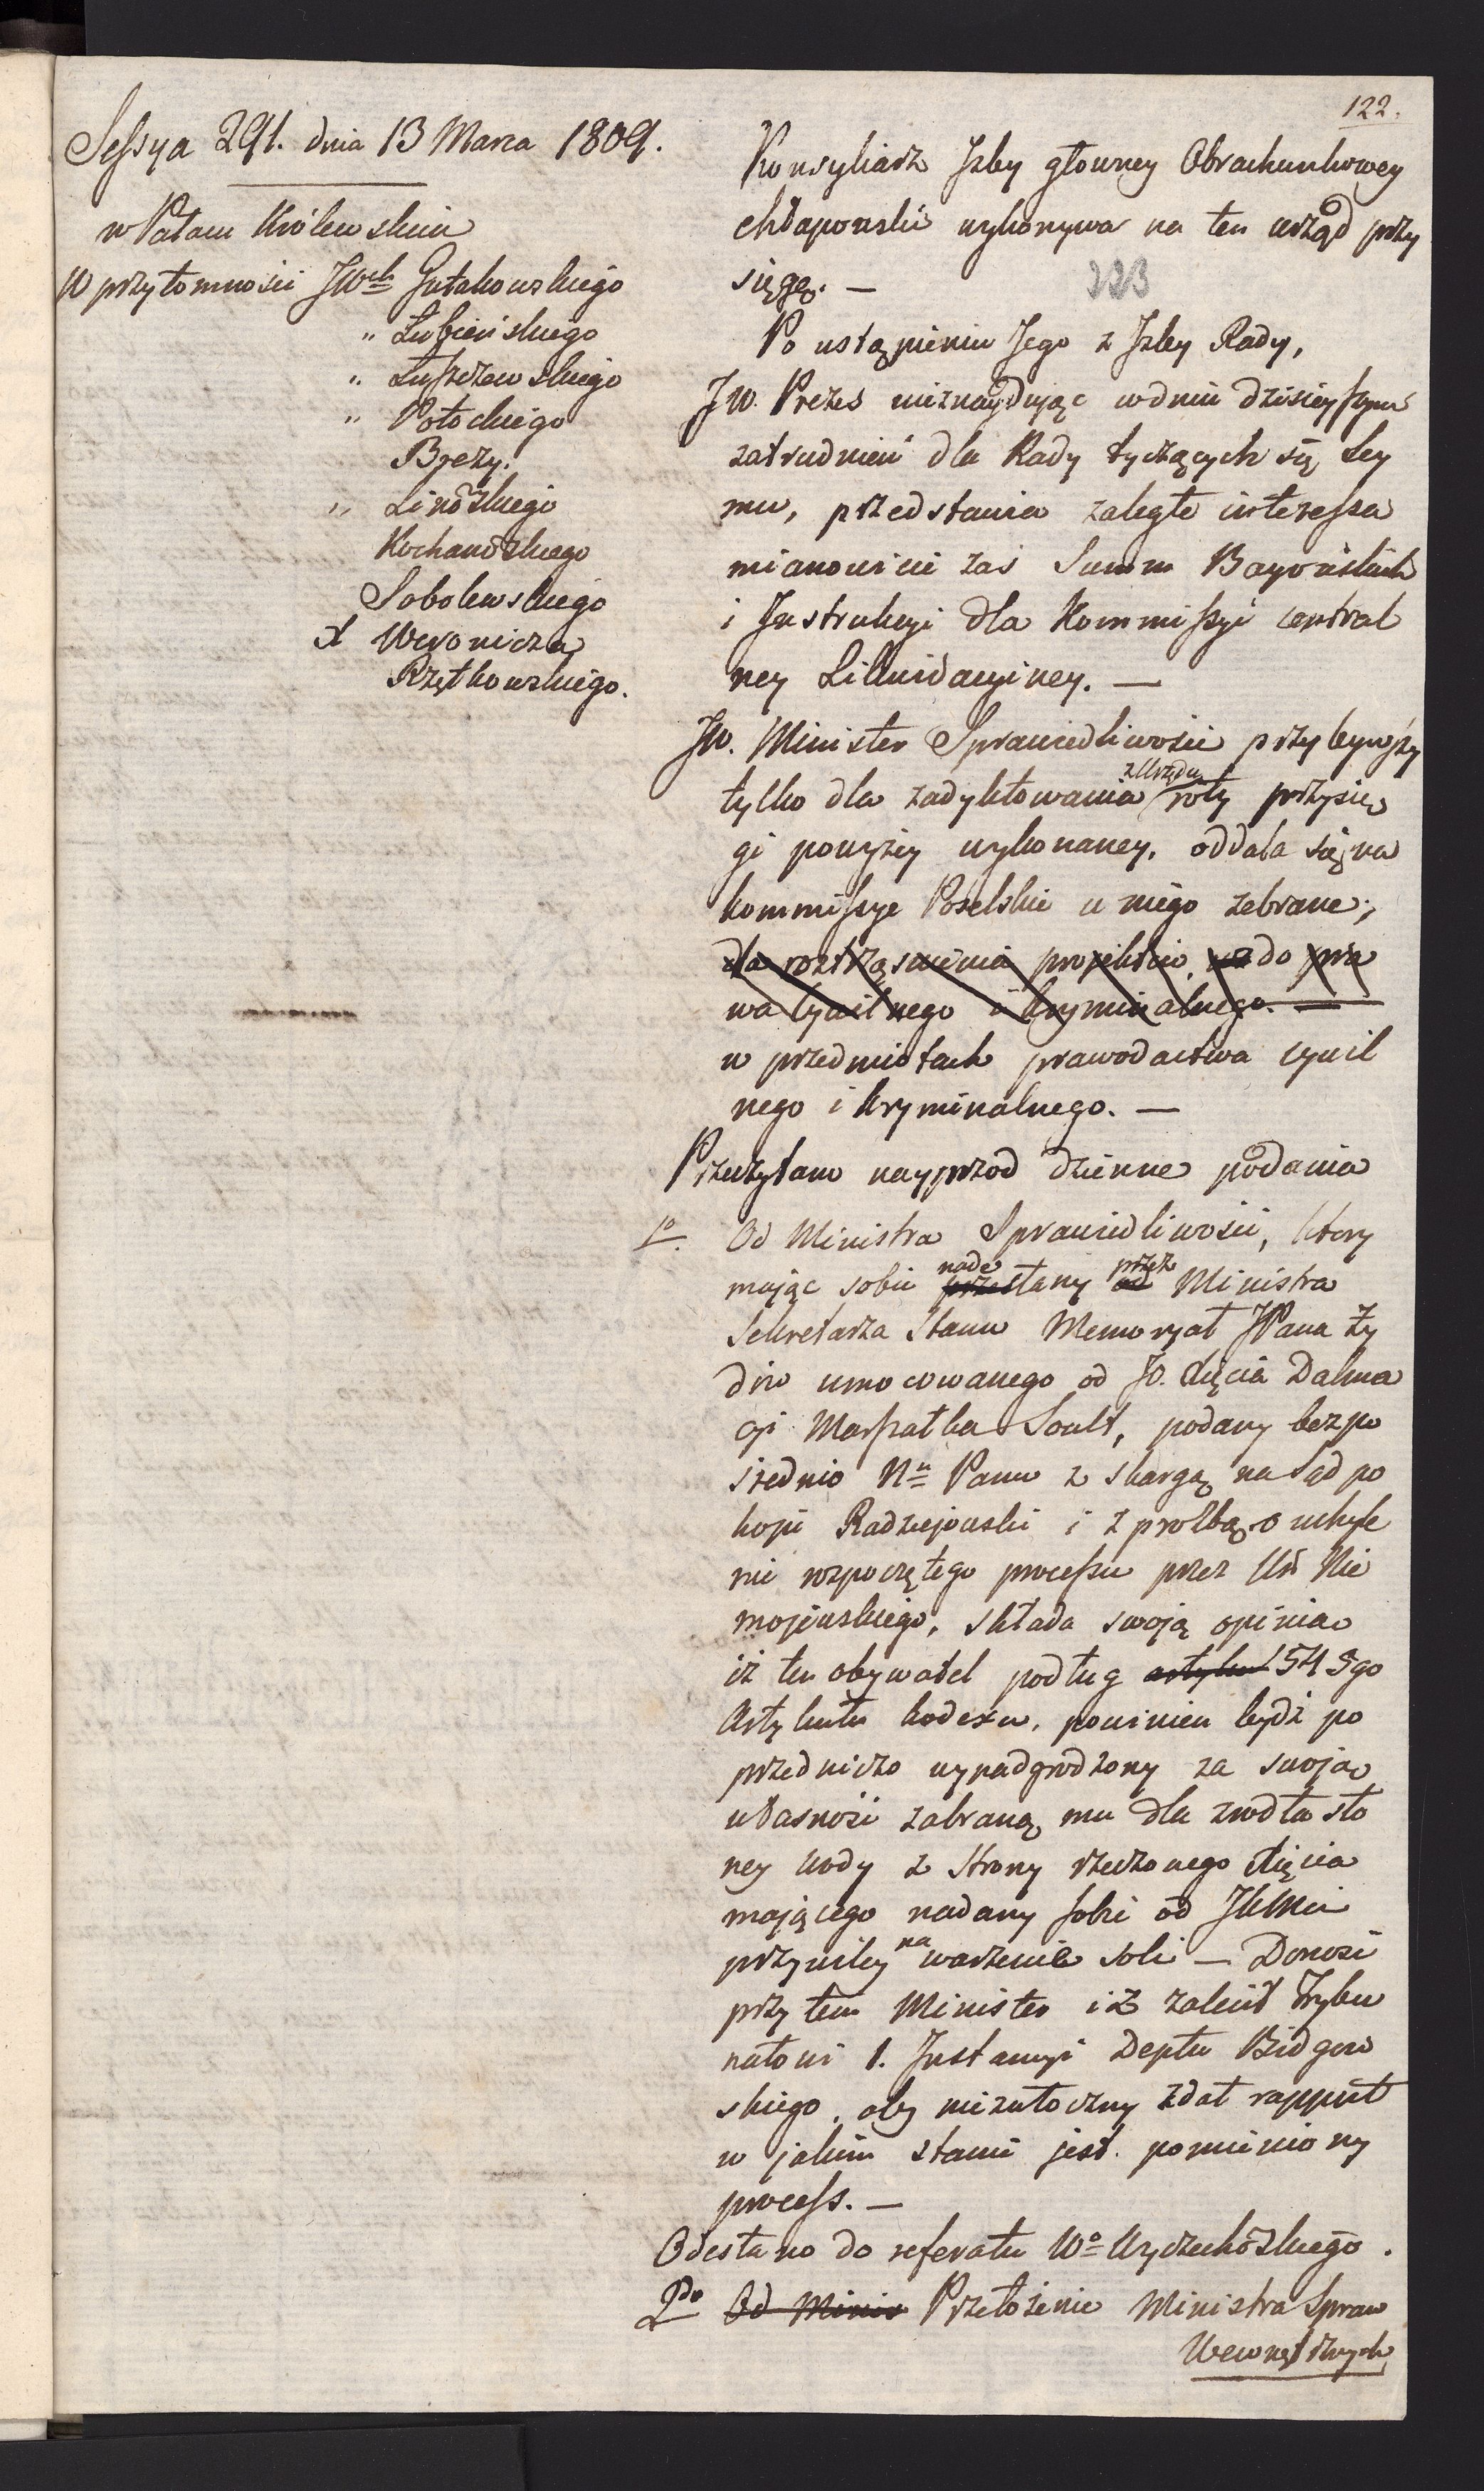 122.
Sessya 291. dnia 13 Marca 1809.
w Pałacu Królewskim
W przytomności JWch Gutakowskiego
" Łubieńskiego
" Łuszczewskiego
" Potockiego
Brezy.
" Linoskiego
Kochanoskiego
Sobolewskiego
X Woronicza
Rzętkowskiego.
Konsyliarz Izby głowney Obrachunkowey
Chłapowski wykonywa na ten urząd przy
sięgę. —
223
Po ustąpieniu Jego z Izby Rady,
JW. Prezes nieznayduiąc w dniu dzisieyszym
zatrudnień dla Rady tyczących się Sey
mu, przedstawia zaległe interessa
mianowicie zaś Summ Bayońskich
i Instrukcyi dla Kommissyi central
ney Likwidacyiney. —
JW. Minister Sprawiedliwości przybywszy
z Urzędu
tylko dla zadyktowania roty przysię
gi powyżey wykonaney, oddala się na
kommissye Poselskie u niego zebrane;
dla roztrząsnienia projektów do pra
wa Cywilnego i kryminalnego. —
w przedmiotach prawodactwa cywil
nego i kryminalnego. —
Przeczytano nayprzod dzienne podania
1o. Od Ministra Sprawiedliwości, ktory
nade przez
mając sobie przesłany od Ministra
Sekretarza Stanu Memoryał JPana Ży
dow umocowanego od JO. Xięcia Dalma
cyi Marszałka Soult, podany bezpo
średnio Nu Panu z skargą na Sąd po
koju Radziejowski i z prośbą o uchyle
nie rozpoczętego processu przez Ur Nie
mojewskiego, składa swoją opinią
iż ten obywatel podług artykuł 545go
Artykułu kodexu, powinien bydź po
przedniczo wynadgrodzony za swoją
własność zabraną mu dla zrodła sło
ney wody z Strony rzeczonego Xięcia
mającego nadany sobie od JKMci
na
przywiley warzenie soli — Donosi
przy tem Minister iż zalecił Trybu
nałowi 1. Instancyi Deptu Bidgow
skiego, aby niezwłoczny zdał rapport
w jakim stanie jest pomieniony
process. —
Odesłano do referatu Wo Wyczechoskiego.
2do Od Minis Przełożenie Ministra Spraw
Wewnętrznych